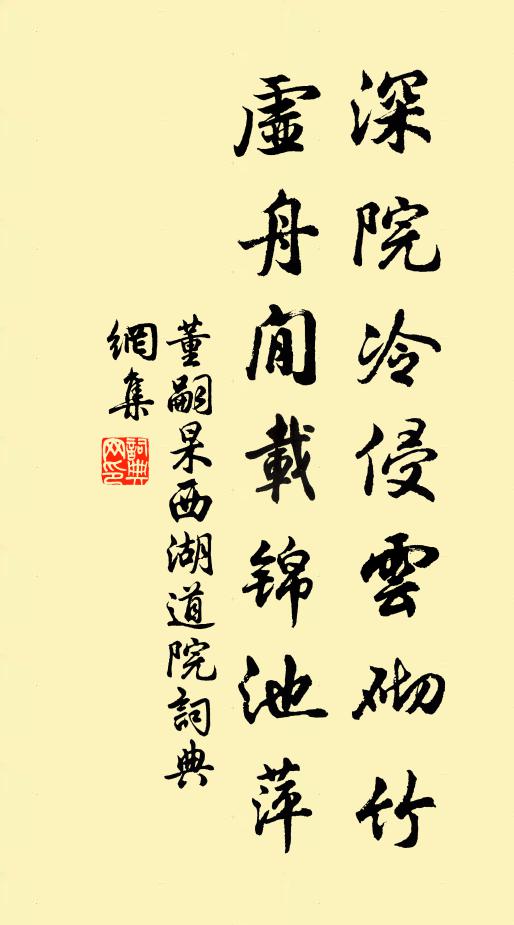 深院冷侵雲砌竹
虛舟閒載錦池萍
董嗣杲西湖道院詞典
網集
詞典網印